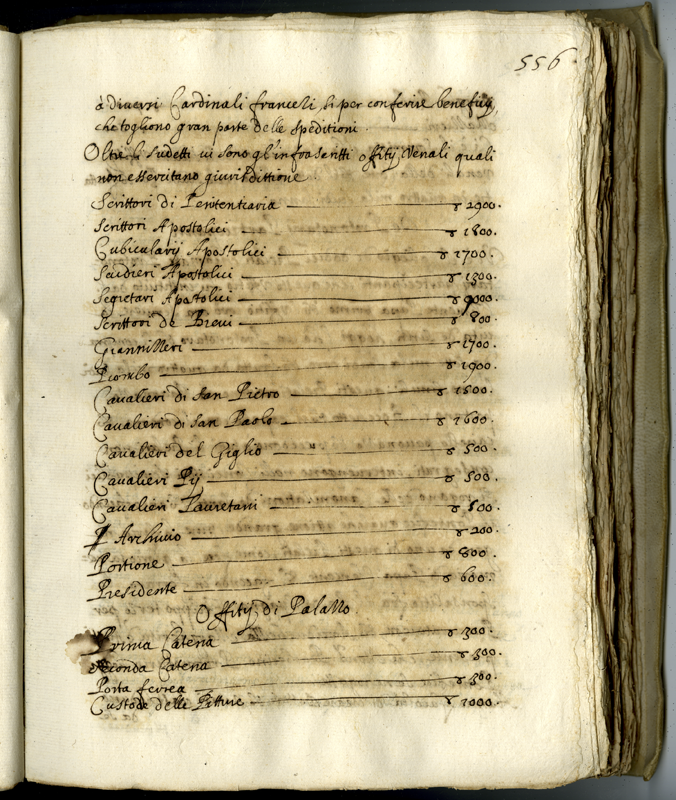 556
à diversi Cardinali francesi, si per conferire beneficij,
che togliono gran parte delle speditioni.
Oltre li sudetti vi sono gl'infrascritti offitij Venali quali
non essercitano giurisdittione.
Scrittori di Penitentiaria — ꝸ 2900.
Scrittori Apostolici — ꝸ 1800.
Cubicularij Apostolici — ꝸ 1700.
Scudieri Apostolici — ꝸ 1300.
Segretari Apostolici — ꝸ 9000.
Scrittori de Brevi — ꝸ 800.
Giannizzeri — ꝸ 1700.
Piombo — ꝸ 1900.
Cavalieri di San Pietro — ꝸ 1500.
Cavalieri di San Paolo — ꝸ 1600.
Cavalieri del Giglio — ꝸ 500.
Cavalieri Pij — ꝸ 500.
Cavalieri Lauretani — ꝸ 500.
Archivio — ꝸ 200.
Portione — ꝸ 800.
Presidente — ꝸ 600.
Offitij di Palazzo.
Prima Catena — ꝸ 300.
Seconda Catena — ꝸ 300.
Porta ferrea — ꝸ 300.
Custode delle Pitture — ꝸ 1000.